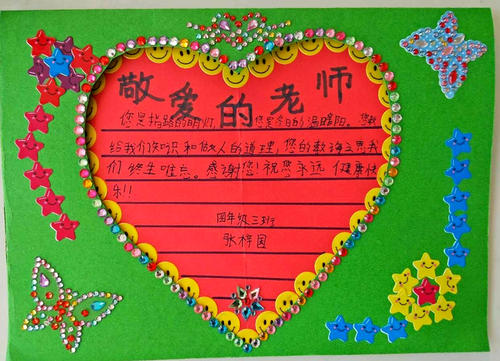 敬爱的老师
您是指路的明灯,您是冬日的温暖阳。您教
给我们知识和做人的道理,您的教诲之恩我
们终生唯忘。感谢您!祝您永远健康快
乐!!
四年级三班
张梓囡